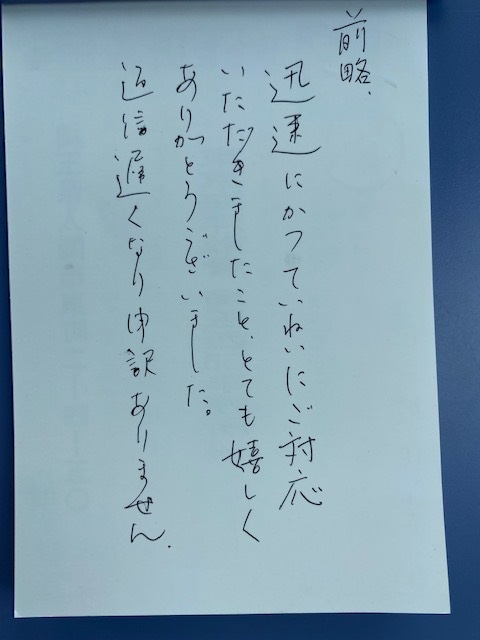 前略、
迅速にかつていねいにご対応
いただきましたこと、とても嬉しく
ありがとうございました。
返信遅くなり申訳ありません.